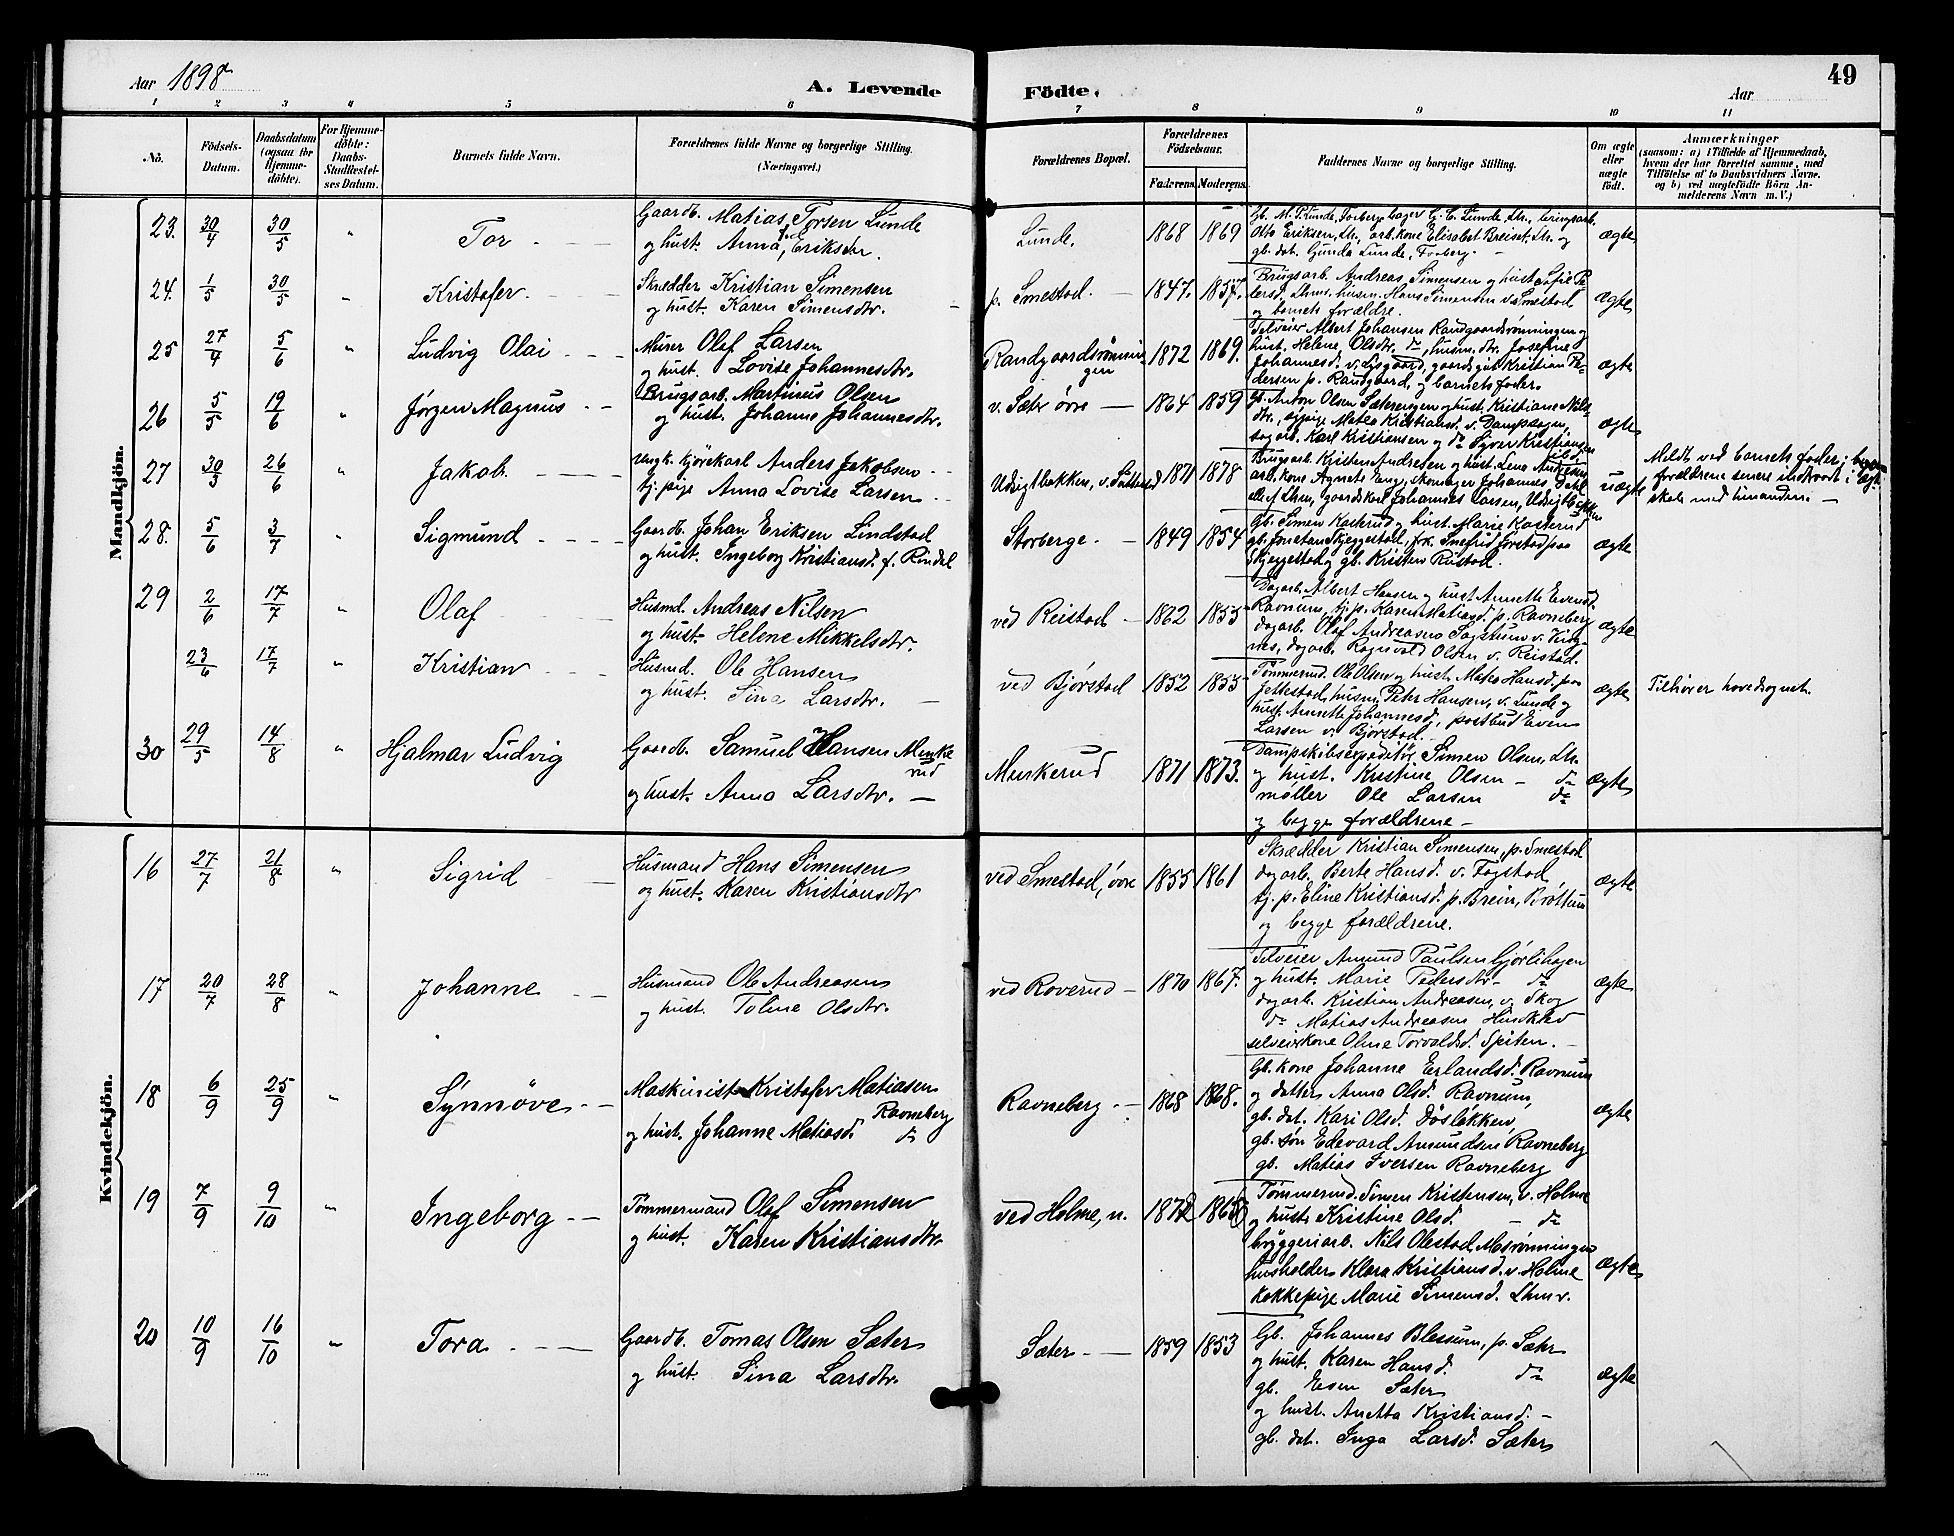 49
Aar 1898
A. Levende Fødte.
Aar
1 2 3 4 5 6 7 8 9 10 11
No.
Fødsels-Datum.
Daabsdatum (ogsaa for Hjemme-døbte).
For Hjemme-døbte: Daabs-Stadfæstel-ses Datum.
Barnets fulde Navn.
Forældrenes fulde Navne og borgerlige Stilling. (Næringsvei.)
Forældrenes Bopæl.
Forældrenes Fødselsaar.
Faderens. Moderens.
Faddernes Navne og borgerlige Stilling.
Om ægte eller uægte født.
Anmærkninger
(saasom: a) i Tilfælde af Hjemmedaab,
hvem der har forrettet samme, med
Tilføielse af to Daabsvidners Navne.
og b) ved uægtefødte Børn An-
melderens Navn m. V.)
Mandkjøn.
23. 30/4 30/5 " Tor
Gaardb. Matias Torsen Lunde
og hust. Anna Eriksdtr.
Lunde. 1868 1869
Otto Eriksen, Lhr., arb. kone Elisabet Breiset, Lhr. og
gb. dat. Gunda Lunde, Faaberg.
ægte
24. 1/5 30/5 " Kristofer
Skrædder Kristian Simensen
og hust. Karen Simensdtr.
p. Smestad. 1847. 1857.
Brugsarb. Andreas Simensen og hust. Sofie Pe-
dersd., Lhmr. husm. Hans Simensen v. Smestad
og barnets forældre.
ægte
25 27/4 5/6 " Ludvig Olai
Murer Olaf Larsen
og hust. Lovise Johannesdtr.
Randgaardsrønnin-
gen 1872 1869.
Selveier Albert Johansen Randgaardsrønningen og
hust. Helene Olsdtr. do, husm. dtr. Josefine
Johannesd. v. Lysgaard, gaardsgut Kristian Pe-
dersen p. Randgaard, og barnets fader.
ægte
26 5/5 19/6 " Jørgen Magnus
Brugsarb. Martinius Olsen
og hust. Johanne Johannesdtr.
v. Sæter øvre 1864 1859
Gb. Anton Olsen Sæterengen og hust. Kristiane Nils-
dtr., Matea Kristiansd. v.
Karl Kristiansen og do Syver Kristiansen
ægte
27 30/3 26/6 " Jakob.
ungk. kjørekarl Anders Jakobsen
tj. pige Anna Lovise Larsen
Udsigtbakken, v. 1871 1878
Brugsarb. Kristen Andresen og hust. Lena Andresen
arb. kone Agnete Haug, skomager Johannes Dahl
alle af Lhm, gaardskarl Johannes Larsen, Udsigtbakken
uægte
Meldt ved barnets fader; begge
forældrene senere indtraadt i Ægte-
skab med hinanden.
28. 5/6 3/7 " Sigmund
Gaardb. Johan Eriksen Lindstad
og hust. Ingeborg Kristiansd. f. Rindal
Storberge. 1849 1854
Gb. Simen Kasterud og hust. Marie Kasterud
gb. Jonetan Skjeggestad, frk. Smefrid Jørstad paa
Skjeggestad og gb. Kristen Rustad.
ægte
29 2/6 17/7 " Olaf
Husmd. Andreas Nilsen
og hust. Helene Mikkelsdtr.
ved Reistad 1862 1855
Dagarb. Albert Hansen og hust. Annette Evensd.
Ravnum, tj. p. Karen Matiasd. p. Ravneberg
dagarb. Olaf Andreasen Sagstuen v.
nes, dagarb. Ragnvald Olsen v. Reistad.
ægte
23/6 17/7 " Kristian
Husmd. Ole Hansen
og hust. Sina Larsdtr.
ved Bjørstad 1852 1855
Tømmermd. Ole Olsen og hust. Matea Hansd. paa
Jettestad, husm. Peter Hansen, v. Lunde og
hust. Annette Johannesd., postbud Even
Larsen v. Bjørstad.
ægte
Tilhører hovedsognet.
30 29/5 14/8 " Hjalmar Ludvig
Gaardb. Samuel Hansen Munke
rud
og hust. Anna Larsdtr.
Munkerud 1871 1873.
Dampskibsexpeditør Simen Olsen, Lh.
og hust. Kristine Olsen – do
møller Ole Larsen do
og begge forældrene
ægte
Kvindekjøn.
16 27/7 21/8 " Sigrid
Husmand Hans Simensen
og hust. Karen Kristiansdtr
ved Smestad, øvre 1855 1861
Skrædder Kristian Simensen, p. Smestad
dagarb. Berte Hansd. v. Fagstad
tj. p. Eline Kristiansd. p. Brein, Brøttum
og begge forældrene.
ægte
17 20/7 28/8 " Johanne
Husmand Ole Andreasen
og hust. Toline Olsdtr.
ved Roverud 1870 1867.
Selveier Amund Paulsen Gjørlihagen
og hust. Marie Pedersdtr. do
dagarb. Kristian Andreasen, v. Skog
do Matias Andreasen
selveierkone Oline Torvaldsd. Speten.
ægte
18 6/9 25/9 " Synnøve
Maskinist Kristofer Matiasen
Ravneberg
og hust. Johanne Matiasd. do
Ravneberg 1868 1868.
Gb. kone Johanne Erlandsd. Ravnum
og datter Anna Olsd. Ravnum,
gb. dat. Kari Olsd. Døsløkken,
gb. søn Edevard Amundsen Ravneberg
gb. Matias Iversen Ravneberg
ægte
19 7/9 9/10 " Ingeborg
Tømmermand Olaf Simensen
og hust. Karen Kristiansdtr.
ved Holme, n. 1872
Tømmermd. Simen Kristensen, v. Holme
og hust. Kristine Olsd. – do
bryggeriarb. Nils Olestad,
husholder Klara Kristiansd. v. Holme
kokkepige Marie Simensd. Lhmr.
ægte
20 10/9 16/10 " Tora
Gaardb. Tomas Olsen Sæter
og hust. Sina Larsdtr.
Sæter 1859 1853
Gb. Johannes Blessum, p. Sæter
og hust. Karen Hansd. do
gb. Even Sæter
og hust. Anetta Kristiansd. –
gb. dat. Inga Larsd. Sæter
ægte